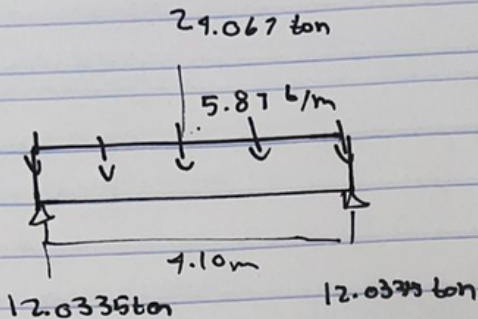 24.067 ton
5.87 t/m
4.10m
12.0335ton
12.0335 ton